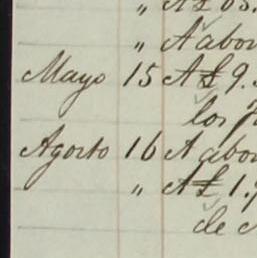 " A £ 65.
" A abo
Mayo 15 A £ 9.
los
Agosto 16 A abo
" A £ 1.
de